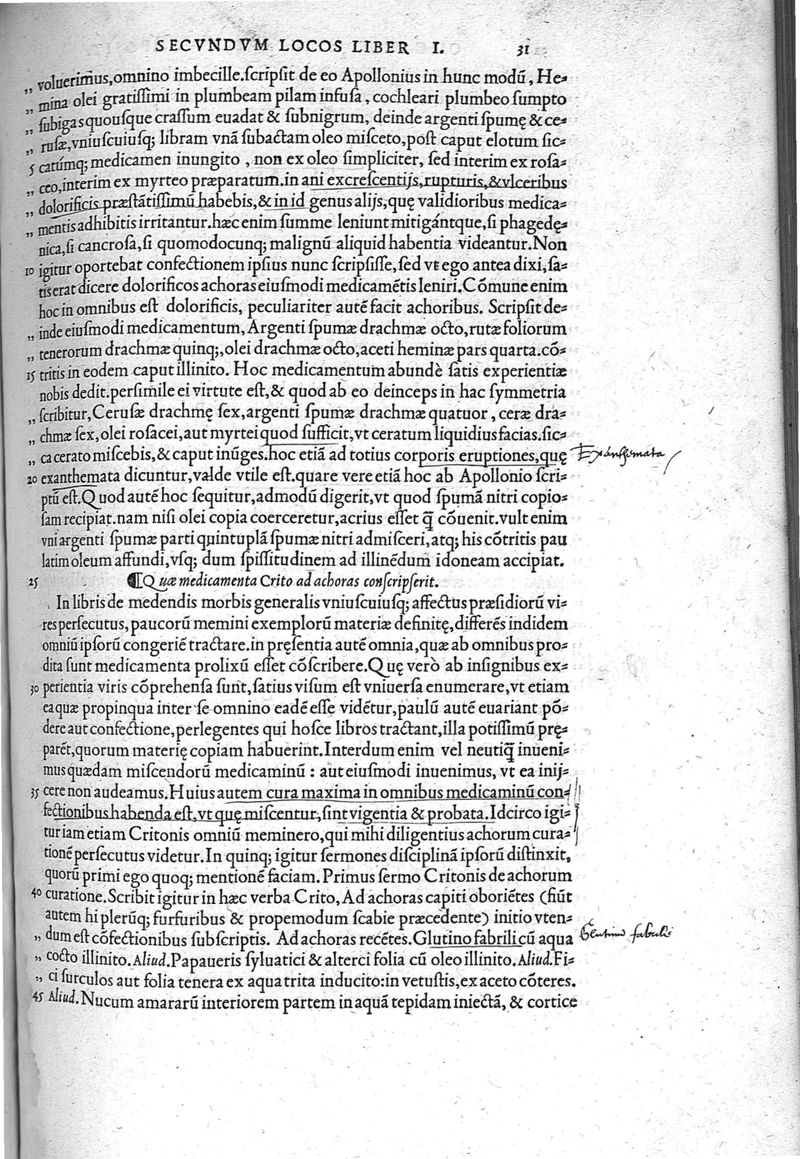 SECVNDVM LOCOS LIBER I. 31
„ voluerimus, omnino imbecille. ſcripſit de eo Apollonius in hunc modũ, He⸗
„ mina olei gratiſſimi in plumbeam pilam infuſa, cochleari plumbeo ſumpto
„ ſubigas quouſque craſſum euadat & ſubnigrum, deinde argenti ſpumę & ce⸗
„ ruſæ, vniuſcuiuſq; libram vnã ſubactam oleo miſceto, poſt caput elotum ſic⸗
5 catũmq; medicamen inungito, non ex oleo ſimpliciter, ſed interim ex roſa⸗
„ ceo, interim ex myrteo præparatum. in ani excreſcentijs, rupturis, & vlceribus
„ dolorificis præſtãtiſſimũ habebis, & in id genus alijs, quę validioribus medica⸗
„ mentis adhibitis irritantur. hæc enim ſumme leniunt mitigántque, ſi phagedę⸗
nica, ſi cancroſa, ſi quomodocunq; malignũ aliquid habentia videantur. Non
10 igitur oportebat confectionem ipſius nunc ſcripſiſſe, ſed vt ego antea dixi, ſa⸗
tis erat dicere dolorificos achoras eiuſmodi medicamẽtis leniri. Cõmune enim
hoc in omnibus eſt dolorificis, peculiariter autẽ facit achoribus. Scripſit de⸗
„ inde eiuſmodi medicamentum, Argenti ſpumæ drachmæ octo, rutæ foliorum
„ tenerorum drachmæ quinq;, olei drachmæ octo, aceti heminæ pars quarta. cõ⸗
15 tritis in eodem caput illinito. Hoc medicamentum abundè ſatis experientiæ
nobis dedit. perſimile ei virtute eſt, & quod ab eo deinceps in hac ſymmetria
„ ſcribitur, Ceruſæ drachmę ſex, argenti ſpumæ drachmæ quatuor, ceræ dra⸗
„ chmæ ſex, olei roſacei, aut myrtei quod ſufficit, vt ceratum liquidius facias. ſic⸗
„ ca cerato miſcebis, & caput inũges. hoc etiã ad totius corporis eruptiones, quę Exanthemata
20 exanthemata dicuntur, valde vtile eſt. quare vere etiã hoc ab Apollonio ſcri⸗
ptũ eſt. Quod autẽ hoc ſequitur, admodũ digerit, vt quod ſpumã nitri copio⸗
ſam recipiat. nam niſi olei copia coerceretur, acrius eſſet q̃ cõuenit. vult enim
vni argenti ſpumæ parti quintuplã ſpumæ nitri admiſceri, atq; his cõtritis pau
latim oleum affundi, vſq; dum ſpiſſitudinem ad illinẽdum idoneam accipiat.
25 ¶Quæ medicamenta Crito ad achoras conſcripſerit.
In libris de medendis morbis generalis vniuſcuiuſq; affectus præſidiorũ vi⸗
res perſecutus, paucorũ memini exemplorũ materiæ definitę, differẽs indidem
omniũ ipſorũ congeriẽ tractare. in pręſentia autẽ omnia, quæ ab omnibus pro⸗
dita ſunt medicamenta prolixũ eſſet cõſcribere. Quę verò ab inſignibus ex⸗
30 perientia viris cõprehenſa ſunt, ſatius viſum eſt vniuerſa enumerare, vt etiam
ea quæ propinqua inter ſe omnino eadẽ eſſe vidẽtur, paulũ autẽ euariant põ⸗
dere aut confectione, perlegentes qui hoſce libros tractant, illa potiſſimũ pre⸗
parẽt, quorum materię copiam habuerint. Interdum enim vel neutiq̃ inueni⸗
mus quædam miſcendorũ medicaminũ : aut eiuſmodi inuenimus, vt ea inij⸗
35 cere non audeamus. Huius autem cura maxima in omnibus medicaminũ con⸗
fectionibus habenda eſt, vt quę miſcentur, ſint vigentia & probata. Idcirco igi⸗
tur iam etiam Critonis omniũ meminero, qui mihi diligentius achorum cura⸗
tionẽ perſecutus videtur. In quinq; igitur ſermones diſciplinã ipſorũ diſtinxit,
quorũ primi ego quoq; mentionẽ faciam. Primus ſermo Critonis de achorum
40 curatione. Scribit igitur in hæc verba Crito, Ad achoras capiti oboriẽtes (fiũt
autem hi plerũq; furfuribus & propemodum ſcabie præcedente) initio vten⸗
„ dum eſt cõfectionibus ſubſcriptis. Ad achoras recẽtes. Glutino fabrili cũ aqua Glutino fabrili
„ cocto illinito. Aliud. Papaueris ſyluatici & alterci folia cũ oleo illinito. Aliud. Fi⸗
„ ci ſurculos aut folia tenera ex aqua trita inducito: in vetuſtis, ex aceto cõteres.
45 Aliud. Nucum amararũ interiorem partem in aquã tepidam iniectã, & cortice